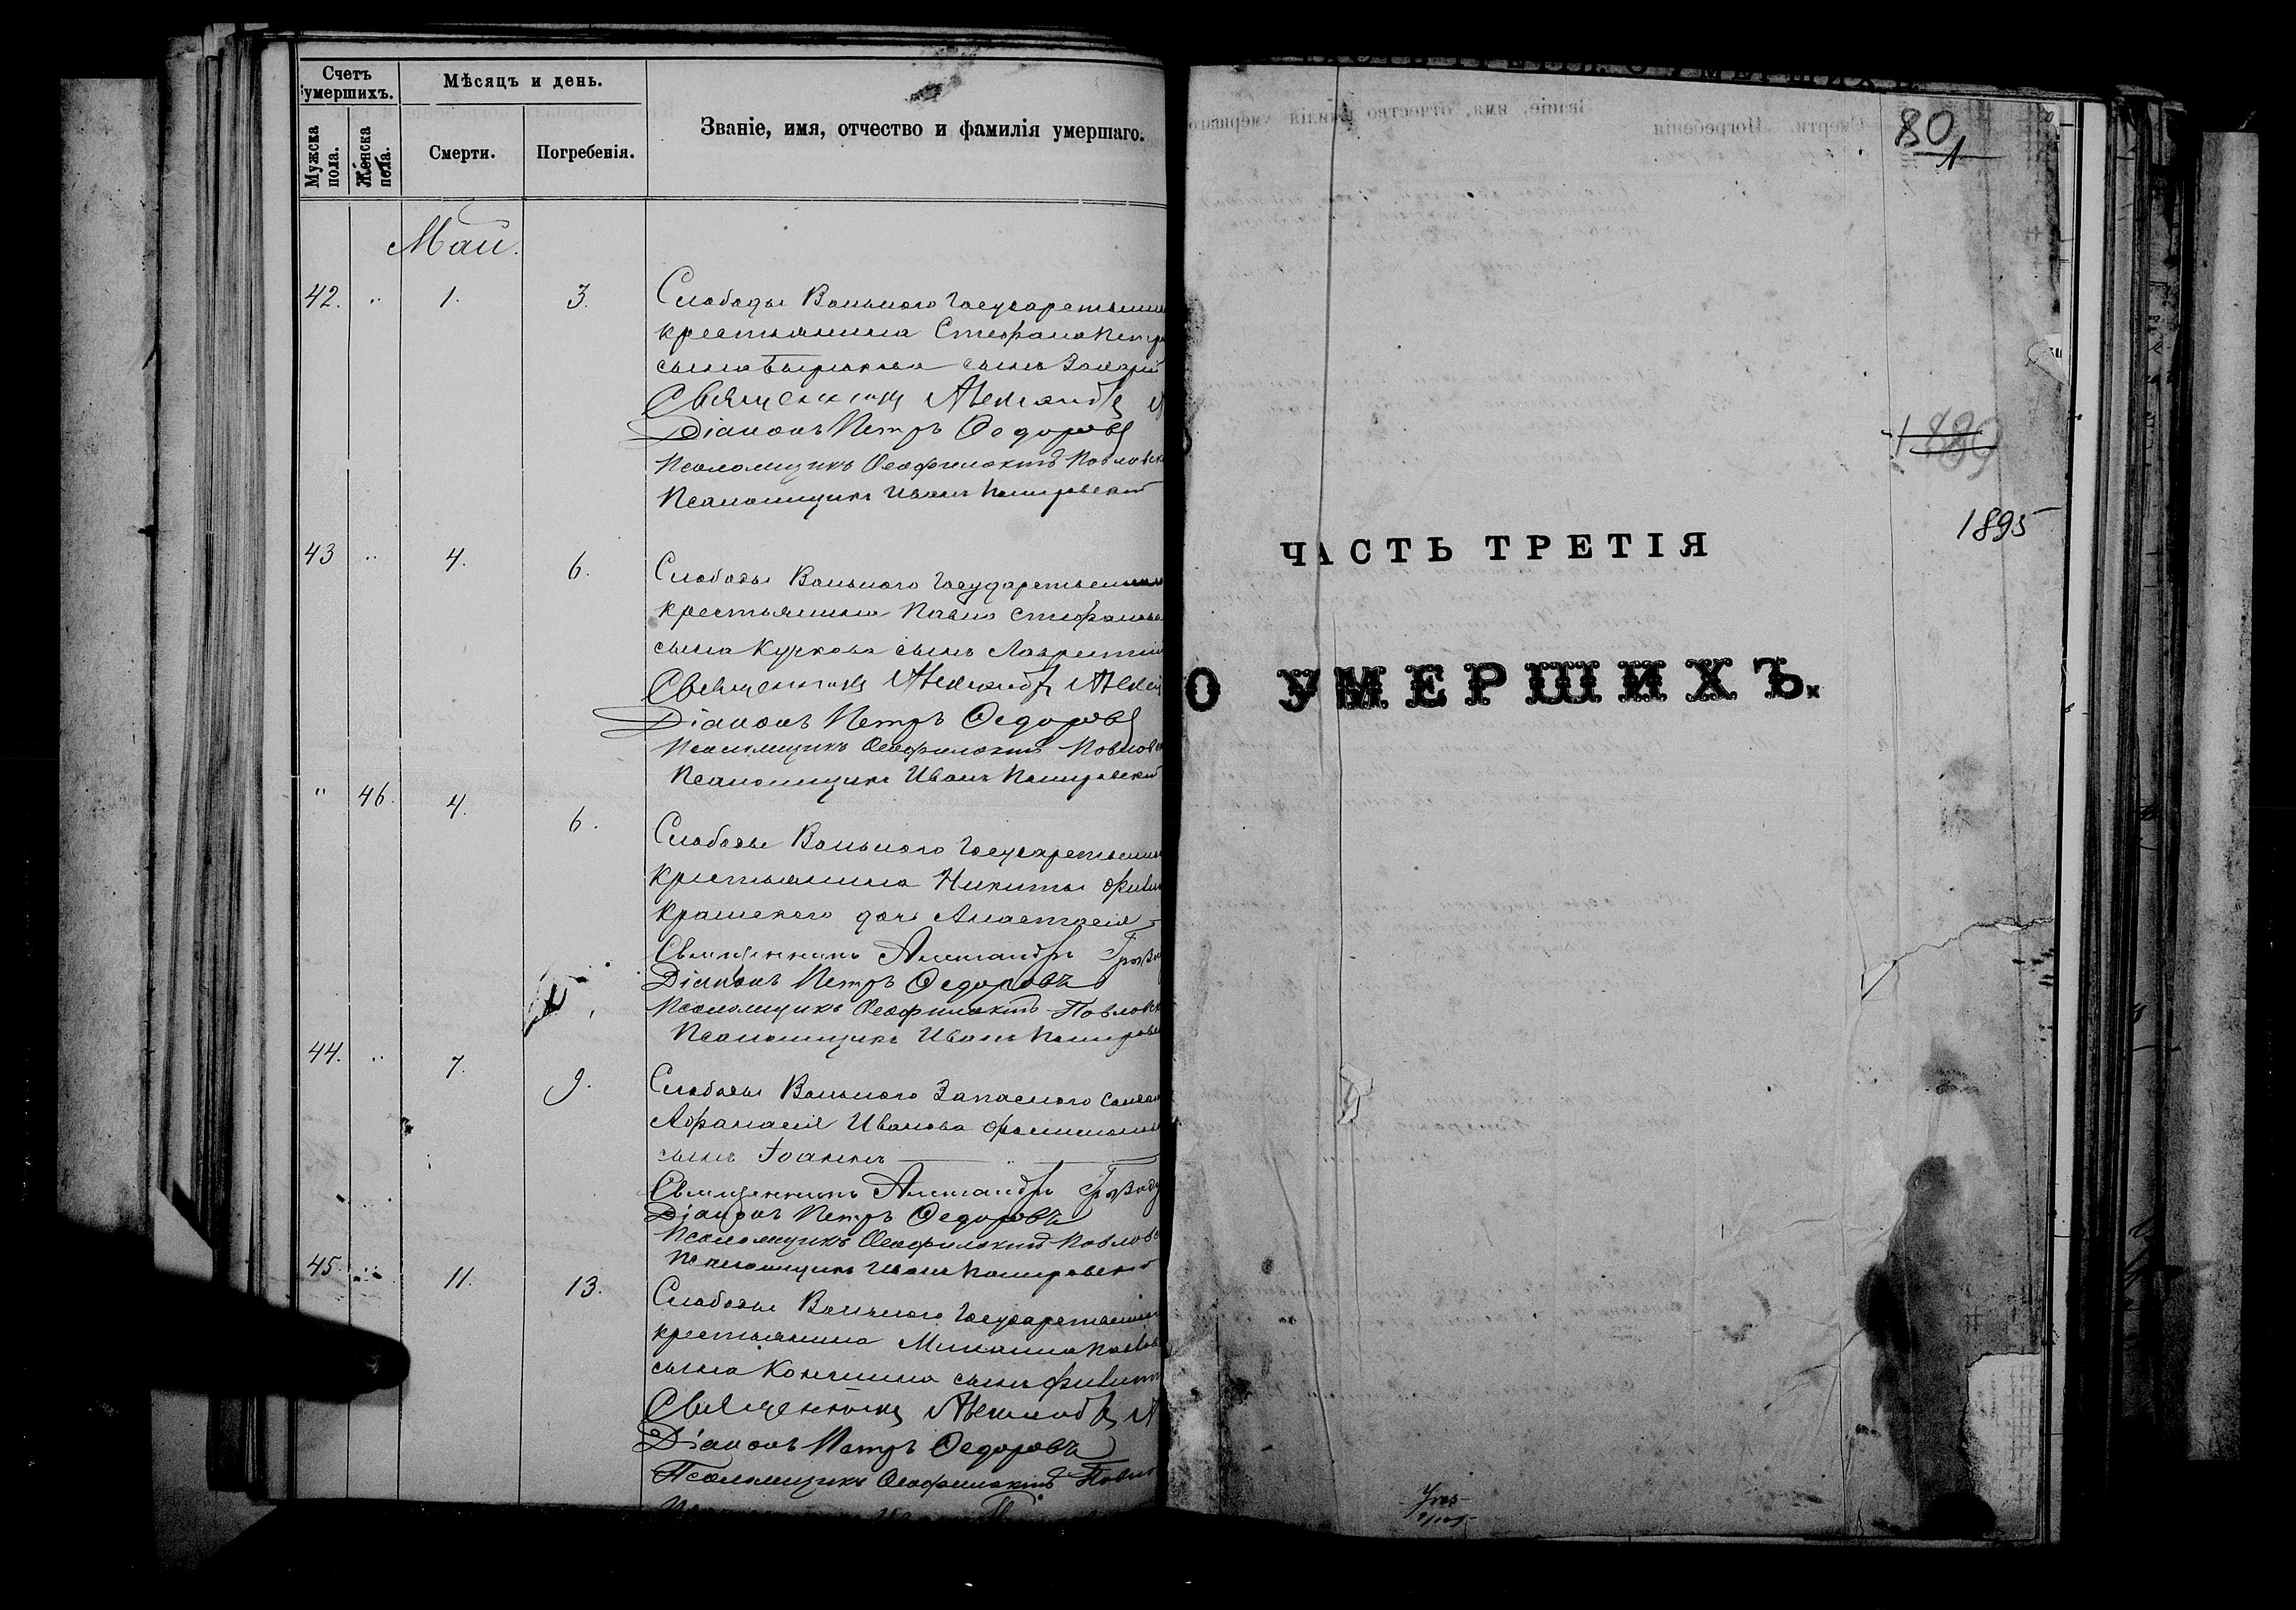 Счетъ
умершихъ.
Мѣсяцъ и день.
Званіе, имя, отчество и фамилія умершаго.
Мужска
пола.
Женска
пола.
Смерти.
Погребенія.
Май.
42. " 1. 3.
Слободы Вольного Государственна
крестьянина Стефана Петр
сына сынъ Захарій
Священникъ Александръ А
Діаконъ Петръ Ѳедоровъ
Псаломщикъ Ѳеофилактъ Павловск
Псаломщикъ Иванъ
43 " 4. 6.
Слободы Вольного Государственнаго
крестьянина Павла Стефанова
сына Кучкова сынъ Лаврентій
Священникъ Александръ Алексѣ
Діаконъ Петръ Ѳедоровъ
Псаломщикъ Ѳеофилактъ Павловс
Псаломщикъ Иванъ
" 46. 4. 6.
Слободы Вольного Государственна
крестьянина Никиты Фили
дочь Анастасія
Священникъ Александръ
Діаконъ Петръ Ѳедоровъ
Псаломщикъ Ѳеофилактъ Павловск
Псаломщикъ Иванъ
44. " 7. 9.
Слободы Вольного Запасного Солдат
Афанасія Иванова
сынъ Іоаннъ
Священникъ Александръ
Діаконъ Петръ Ѳедоровъ
Псаломщикъ Ѳеофилактъ Павловс
Псаломщикъ Иванъ
45. " 11. 13.
Слободы Вольного Государственна
крестьянина Михаила Павлов
сына сынъ Филип
Священникъ Александръ А
Діаконъ Петръ Ѳедоровъ
Псаломщикъ Ѳеофилактъ Павло
80
1
1895
ЧАСТЬ ТРЕТІЯ
О УМЕРШИХЪ.